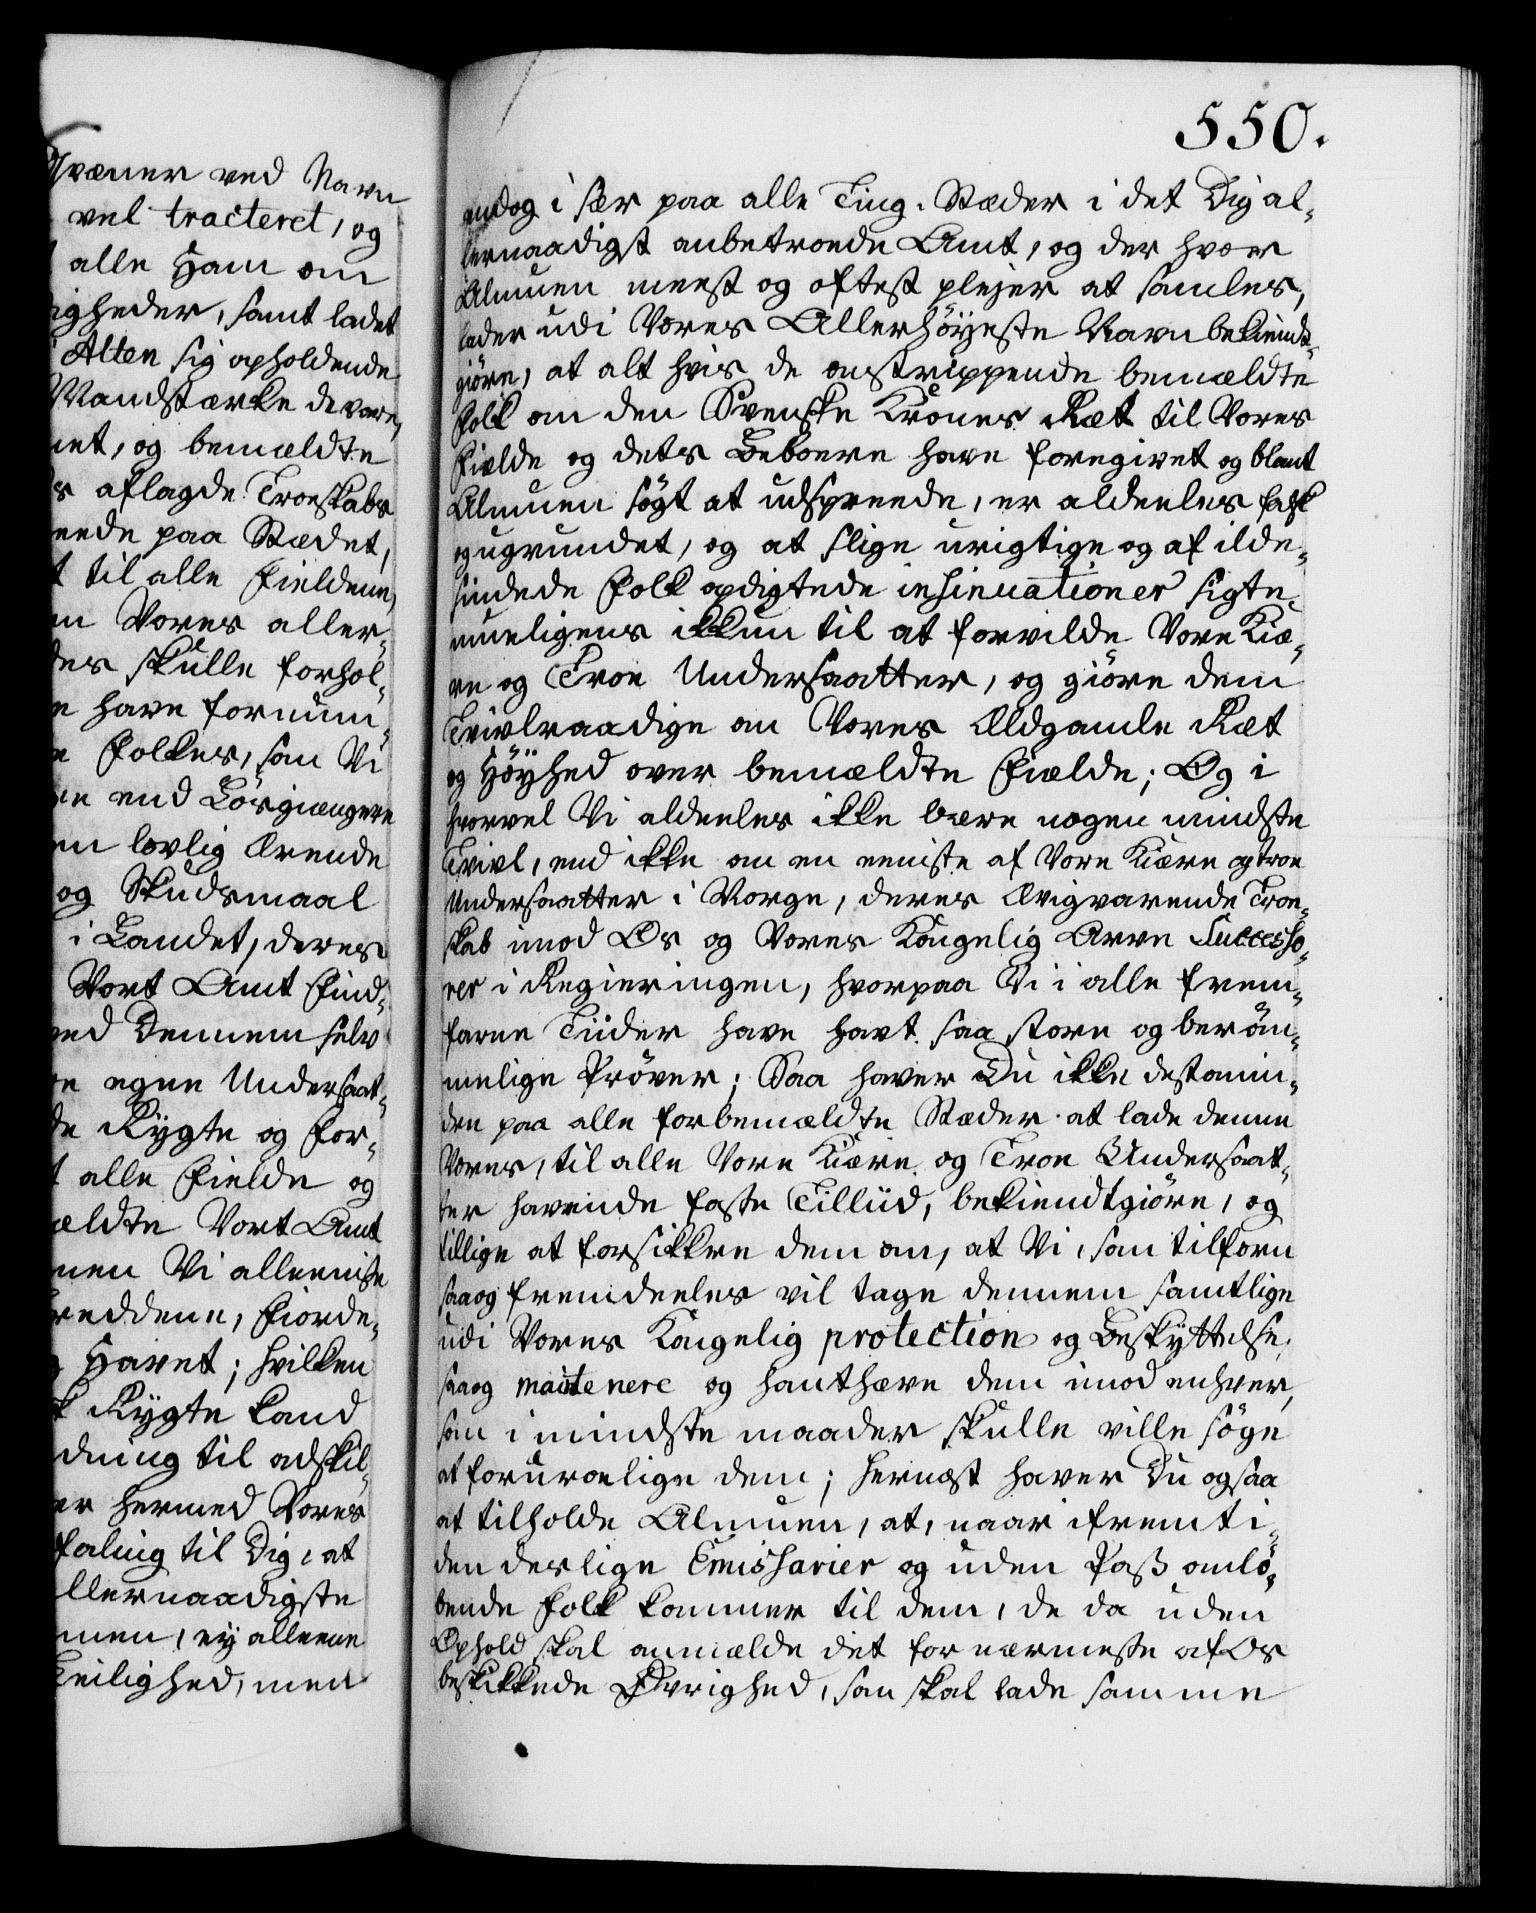 qvæner ved Navn
vel tracteret, og
alle Ham om
igheder, samt ladet
Alten sig opholdende
Mandstærke de vare,
net, og bemældte
s aflagde Troeskabs
eede paa Stædet,
t til alle Fieldene,
en Vores aller-
des skulle forhol-
e have fornum-
e Folkes, som Vi
re end Løsgiængere
en lovlig Ærende
og Skudsmaal
i Landet, deres
Vort Amt Find-
ved Dennem selv
re egne Undersaat-
de Rygte og For-
t alle Fielde og
ældte Vort Amt
men Vi alleeniste
reddene, Fiorde-
g Havet; hvilken
k Rygte kand
dning til adskil-
er hermed Vores
faling til Dig, at
llernaadigste
men, ej alleene
Leilighed, men
550.
endog i sær paa alle Ting-Stæder i det Dig al-
lernaadigst anbetroede Amt, og der hvor
Almuen meest og oftest plejer at samles,
lader udi Vores Allerhöyeste Navn bekiendt-
giöre, at alt hvis de omstrippende bemældte
Folk om den Svenske Krones Ræt til Vores
Fielde og dets Beboere have foregivet og blant
Almuen sögt at udspreede, er aldeeles falsk
og ugrundet, og at slige urigtige og af ilde-
sindede Folk opdigtede insinuationer sigte
mueligens ikkun til at forvilde Vore Kiæ-
re og Troe Undersaatter, og giöre dem
Tvivlraadige om Vores Ældgamle Ræt
og Höyhed over bemældte Fielde; Og i
hvorvel Vi aldeeles ikke bære nogen mindste
Tvivl, end ikke om en eeniste af Vore Kiære og troe
Undersaatter i Norge, deres Ævigvarende Troe-
skab imod Os og Vores Kongelig Arve Successo-
rer i Regieringen, hvorpaa Vi i alle frem-
farne Tiider have havt saa store og beröm-
melige Pröver; Saa haver Du ikke destomin-
dre paa alle forbemældte Stæder at lade denne
Vores, til alle Vore Kiære og Troe Undersaat-
ter havende faste Tilliid, bekiendtgiöre, og
tillige at forsikkre dem om, at Vi, som tilforn
saa og fremdeeles vil tage dennem samtlige
udi Vores Kongelig protection og Beskyttelse,
saa og maintenere og hanthæve dem imod enhver,
som i mindste maader skulle ville söge
at foruroelige dem; hernæst haver Du ogsaa
at tilholde Almuen, at, naar i fremti-
den deslige Emissarier og uden Pass omlö-
bende Folk kommer til dem, de da uden
Ophold skal anmælde det for nærmeste af Os
beskikkede Øvrighed, som skal lade samme